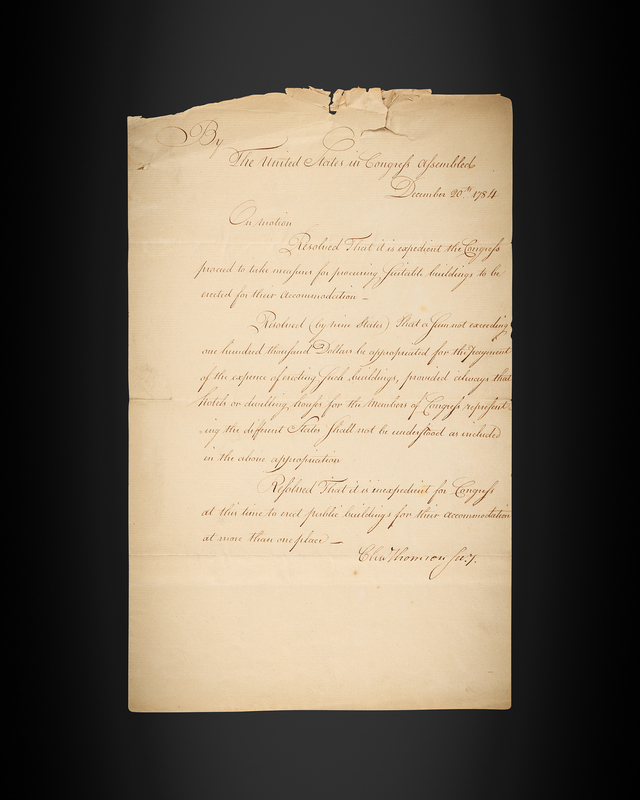 By
The United States in Congress Assembled
December 20th 1784
On motion
Resolved That it is expedient the Congress
proceed to take measures for procuring suitable buildings to be
erected for their accommodation –
Resolved (by nine States) That a sum not exceeding
one hundred thousand Dollars be appropriated for the payment
of the expence of erecting such buildings, provided always that
hotels or dwelling houses for the Members of Congress represent-
ing the different States shall not be understood as included
in the above appropriation
Resolved That it is inexpedient for Congress
at this time to erect public buildings for their accommodation
at more than one place –
Chas Thomson Secy.